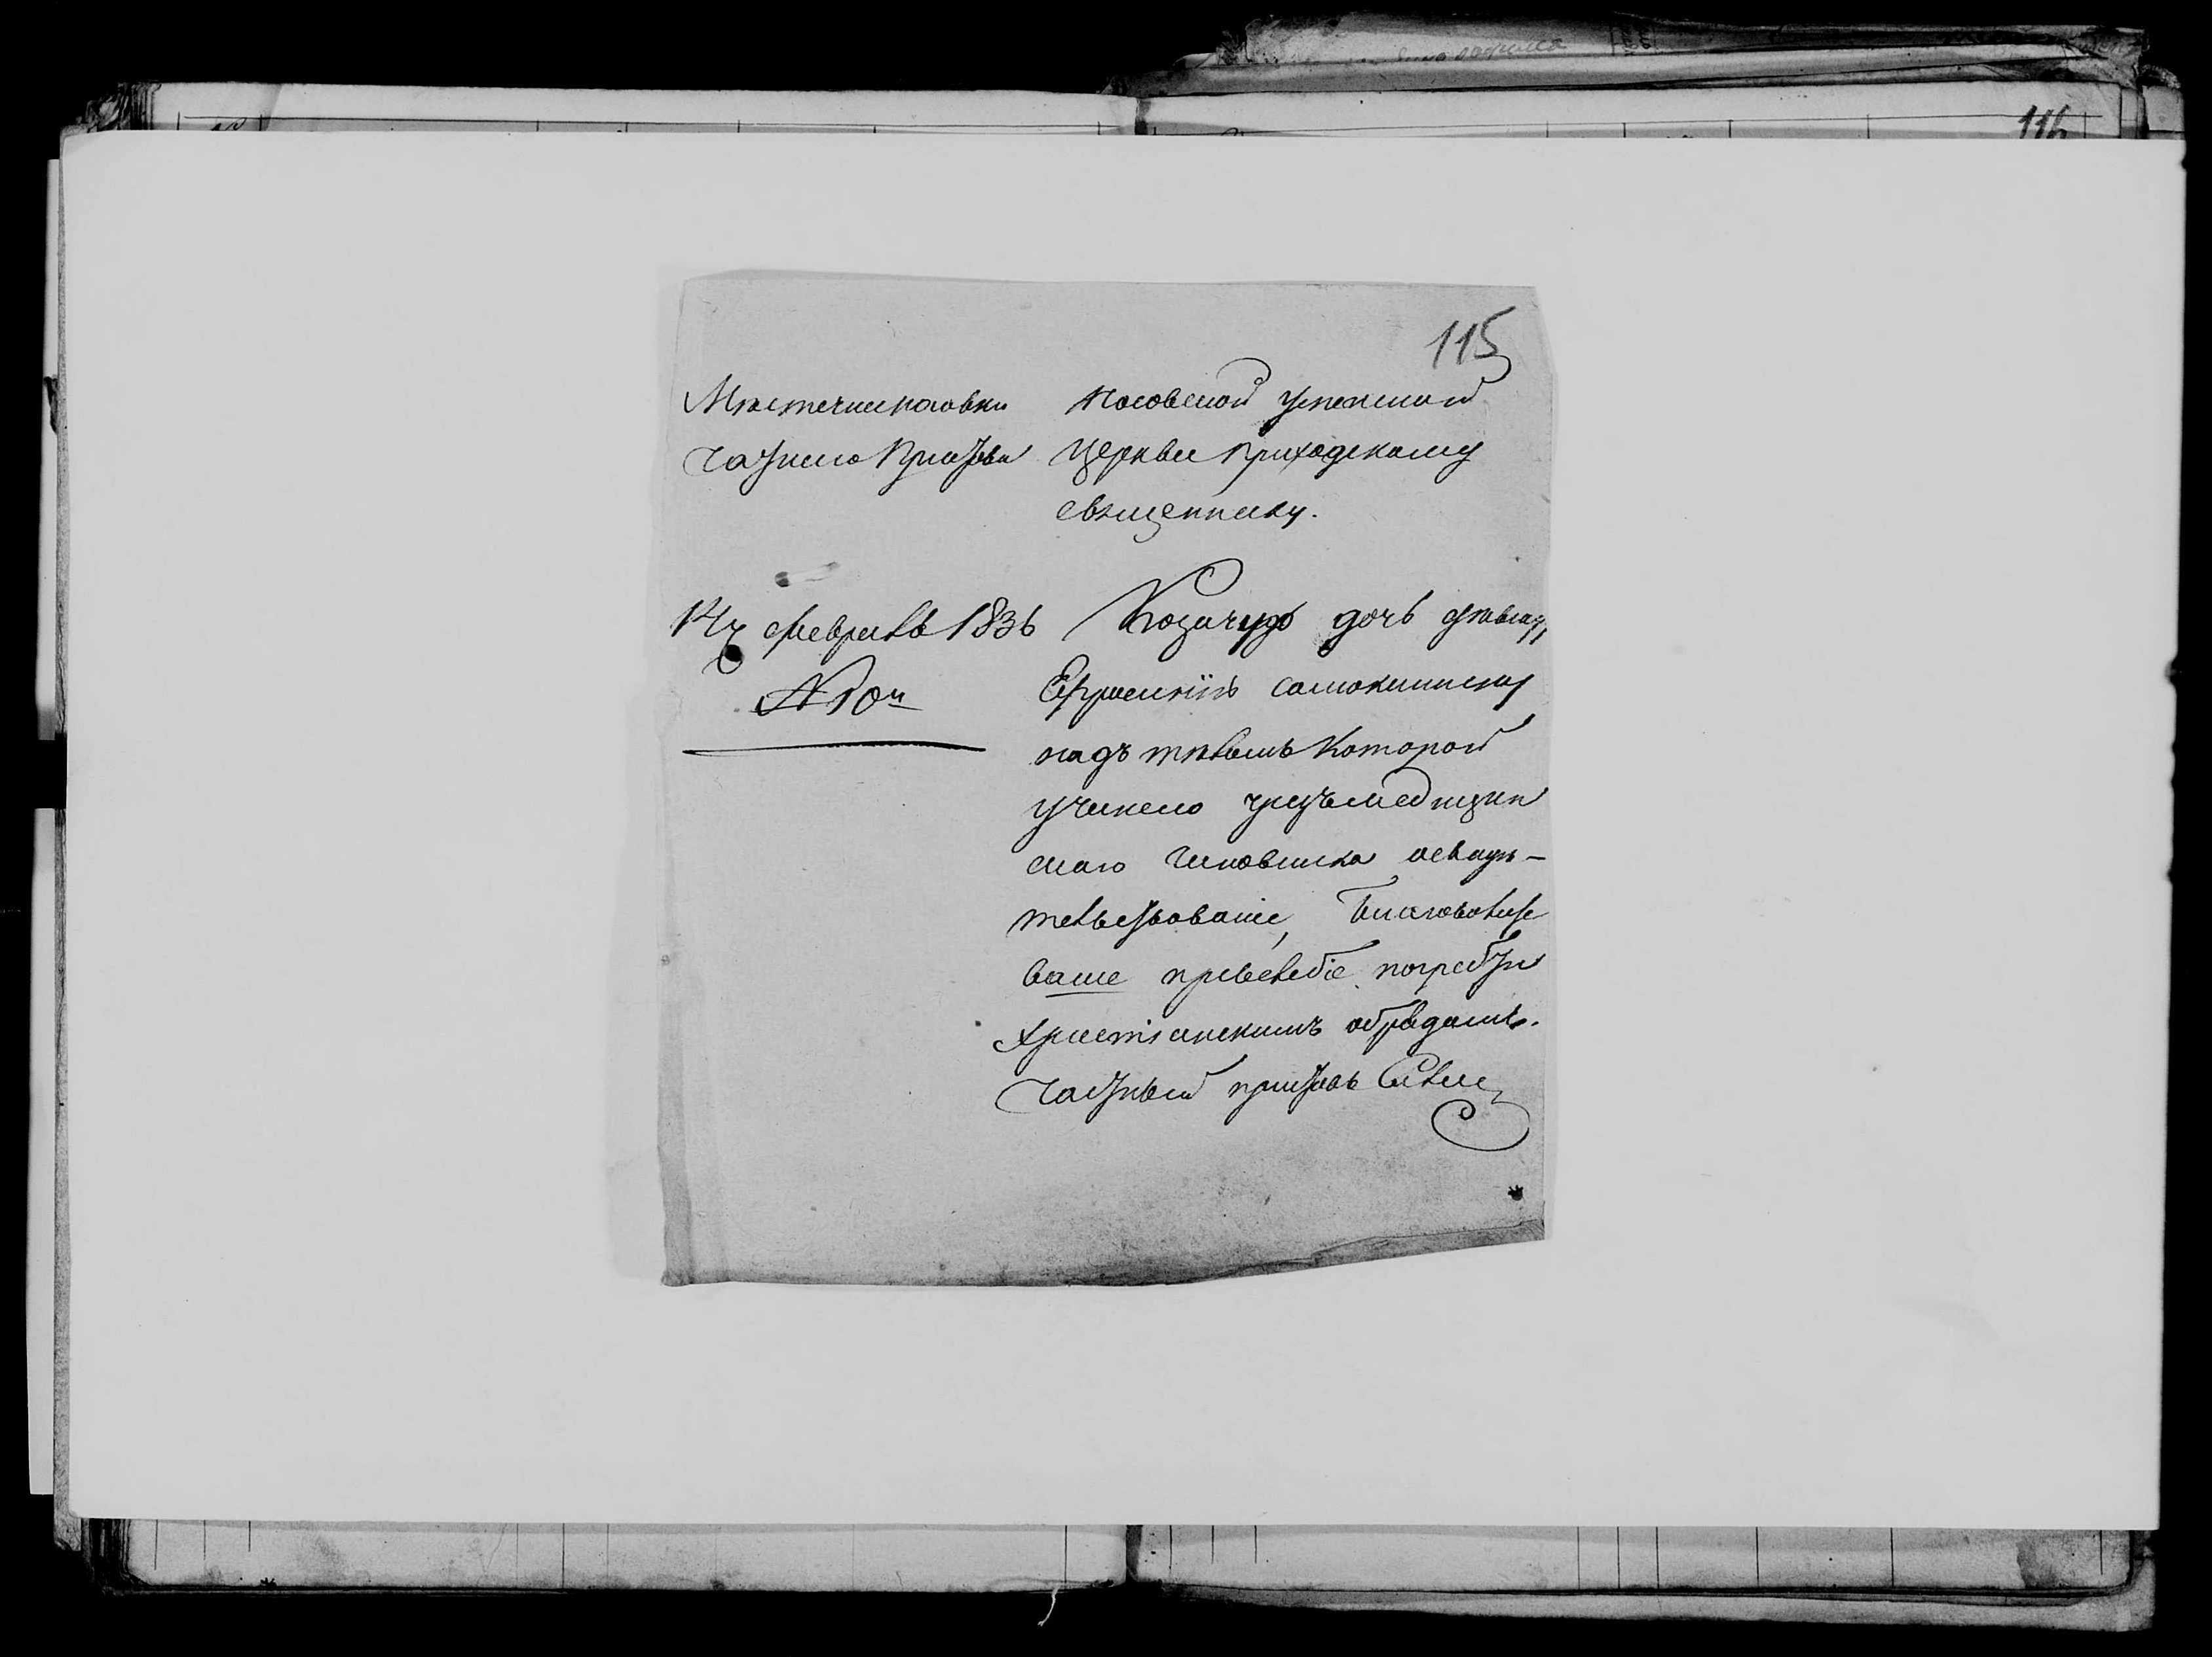 115
Местечка носовки
Частного Пристава
Носовской успенской
Церкви Приходскому
священнику.
14 февраля 1836
№ 10й
Козачую дочь девицу
Ефросинію
надъ тѣломъ Которой
учинено чрезъ медицин
скаго Чиновника освидѣ-
тельствованіе, благоволите
ваше преподобіе погребсти
христіанскимъ обрядомъ.
Частный приставъ
116